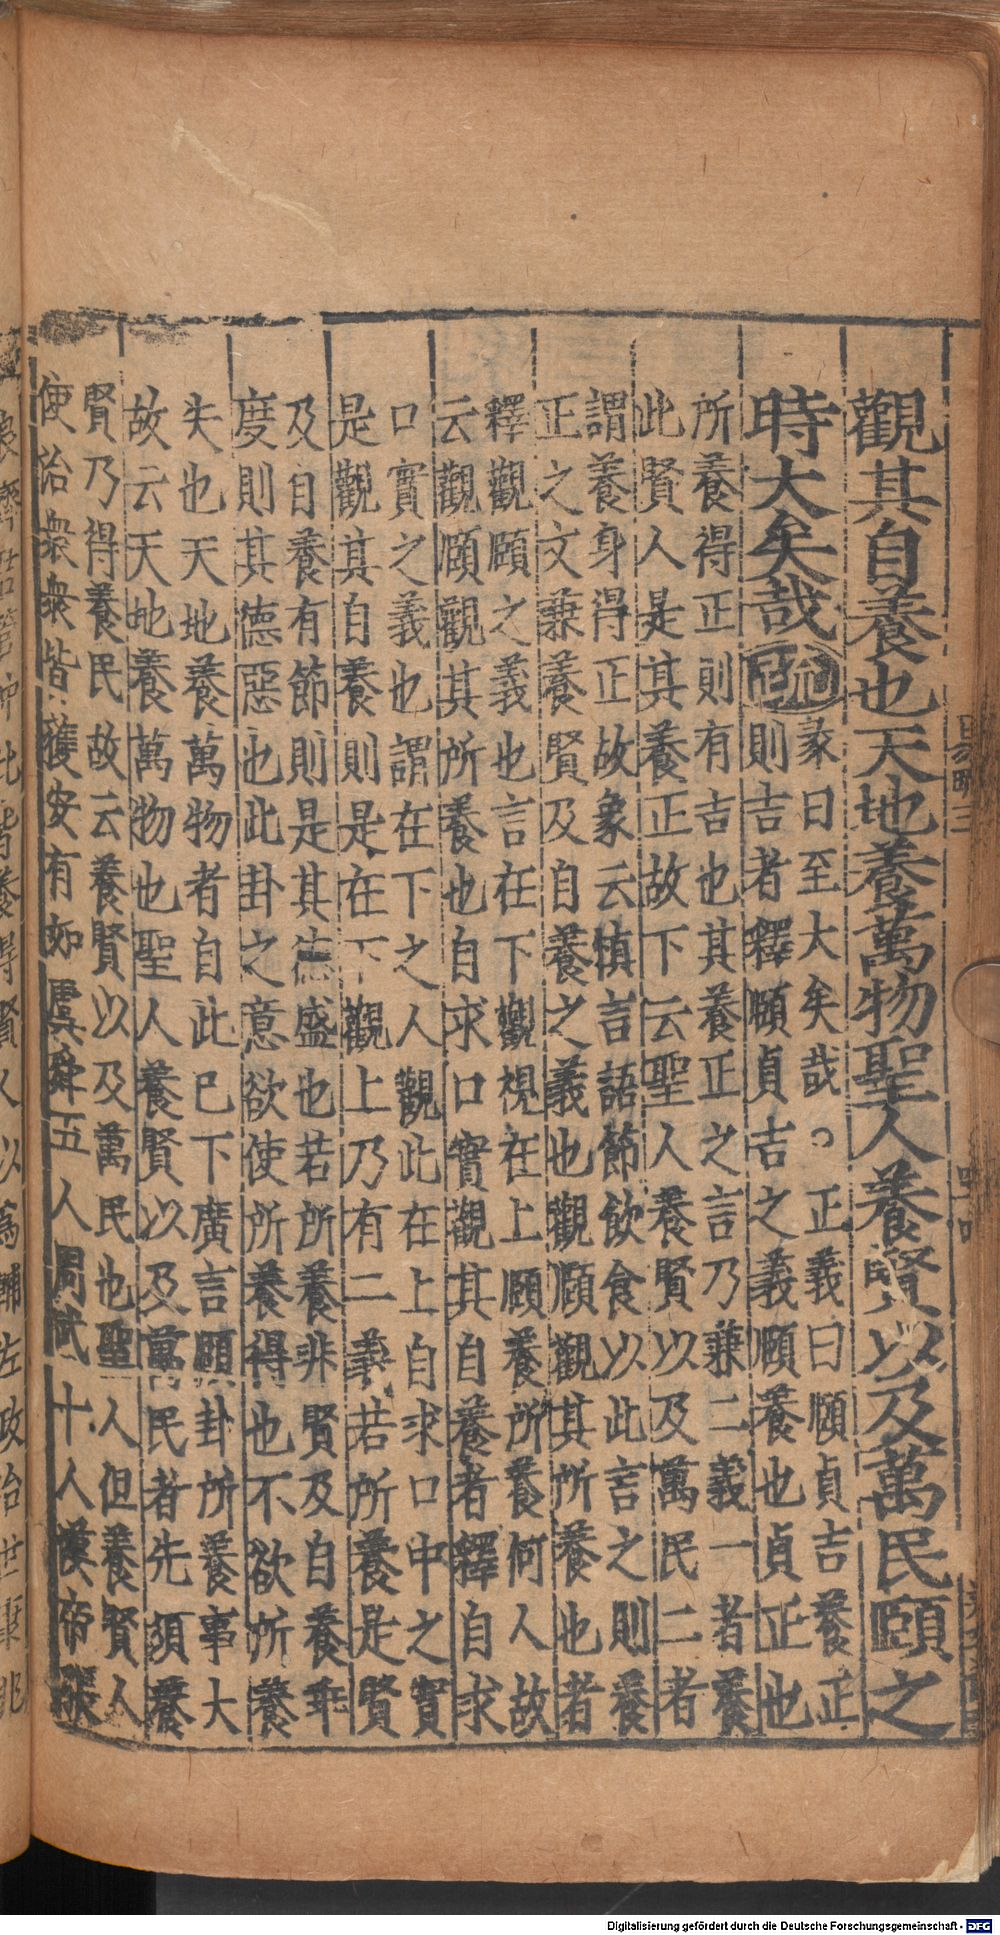 觀其自養也天地養萬物聖人養賢以及萬民頤之
時大矣哉疏
彖曰至大矣哉。正義曰頤貞吉養正
則吉者釋頤貞吉之義頤養也貞正也
所養得正則有吉也其養正之言乃兼二義一者養
此賢人是其養正故下云聖人養賢以及萬民二者
謂養身得正故象云慎言語節飲食以此言之則養
正之文兼養賢及自養之義也觀頤觀其所養也者
釋觀頤之義也言在下觀視在上頤養所養何人故
云觀頤觀其所養也自求口實觀其自養者釋自求
口實之義也謂在下之人觀此在上自求口中之實
是觀其自養則是在下觀上乃有二義若所養是賢
及自養有節則是其德盛也若所養非賢及自養乖
度則其德惡也此卦之意欲使所養得也不欲所養
失也天地養萬物者自此已下廣言頤卦所養事大
故云天地養萬物也聖人養賢以及萬民者先須養
賢乃得養民故云養賢以及萬民也聖人但養賢人
使治衆衆皆獲安有如虞舜五人周武十人漢帝張
Digitalisierung gefördert durch die Deutsche Forschungsgemeinschaft - DFG